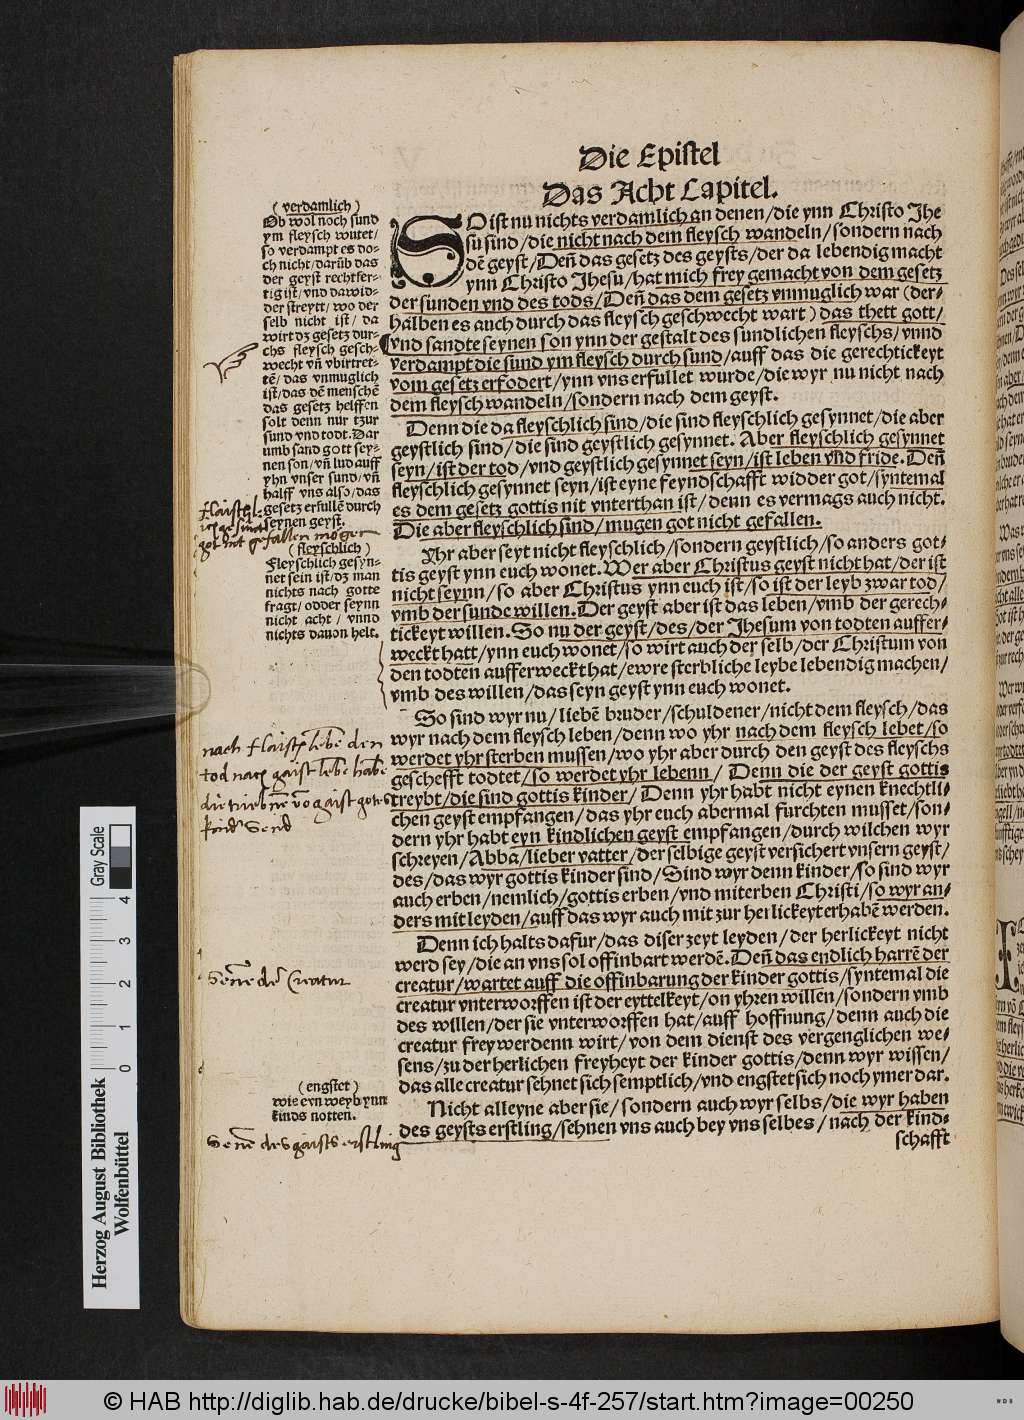 Die Epistel
Das Acht Capitel.
SO ist nu nichts verdamlich an denen/die ynn Christo Jhe
su sind/die nicht nach dem fleysch wandeln/sondern nach
dē geyst/Deñ das gesetz des geysts/der da lebendig macht
ynn Christo Jhesu/hat mich frey gemacht von dem gesetz
der sunden vnd des tods/Deñ das dem gesetz vnmuglich war (der-
halben es auch durch das fleysch geschwecht wart) das thett gott/
vnd sandte seynen son ynn der gestalt des sundlichen fleyschs/vnnd
verdampt die sund ym fleysch durch sund/auff das die gerechtickeyt
vom gesetz erfodert/ynn vns erfullet wurde/die wyr nu nicht nach
dem fleysch wandeln/sondern nach dem geyst.
Denn die da fleyschlich sind/die sind fleyschlich gesynnet/die aber
geystlich sind/die sind geystlich gesynnet. Aber fleyschlich gesynnet
seyn/ist der tod/vnd geystlich gesynnet seyn/ist leben vnd fride. Deñ
fleyschlich gesynnet seyn/ist eyne feyndschafft widder got/syntemal
es dem gesetz gottis nit vnterthan ist/denn es vermags auch nicht.
Die aber fleyschlich sind/mugen got nicht gefallen.
Yhr aber seyt nicht fleyschlich/sondern geystlich/so anders got-
tis geyst ynn euch wonet. Wer aber Christus geyst nicht hat/der ist
nicht seynn/so aber Christus ynn euch ist/so ist der leyb zwar tod/
vmb der sunde willen. Der geyst aber ist das leben/vmb der gerech-
tickeyt willen. So nu der geyst/des/der Jhesum von todten auffer-
weckt hatt/ynn euch wonet/so wirt auch der selb/der Christum von
den todten aufferweckt hat/ewre sterbliche leybe lebendig machen/
vmb des willen/das seyn geyst ynn euch wonet.
So sind wyr nu/liebē bruder/schuldener/nicht dem fleysch/das
wyr nach dem fleysch leben/denn wo yhr nach dem fleysch lebet/so
werdet yhr sterben mussen/wo yhr aber durch den geyst des fleyschs
geschefft todtet/so werdet yhr lebenn/ Denn die der geyst gottis
treybt/die sind gottis kinder/ Denn yhr habt nicht eynen knechtli-
chen geyst empfangen/das yhr euch abermal furchten musset/son-
dern yhr habt eyn kindlichen geyst empfangen/durch wilchen wyr
schreyen/Abba/lieber vatter/der selbige geyst versichert vnsern geyst/
des/das wyr gottis kinder sind/Sind wyr denn kinder/so sind wyr
auch erben/nemlich/gottis erben/vnd miterben Christi/so wyr an-
ders mit leyden/auff das wyr auch mit zur herlickeyt erhabē werden.
Denn ich halts dafur/das diser zeyt leyden/der herlickeyt nicht
werd sey/die an vns sol offinbart werdē. Deñ das endlich harrē der
creatur/wartet auff die offinbarung der kinder gottis/syntemal die
creatur vnterworffen ist der eyttelkeyt/on yhren willen/sondern vmb
des willen/der sie vnterworffen hat/auff hoffnung/denn auch die
creatur frey werdenn wirt/von dem dienst des vergenglichen we-
sens/zu der herlichen freyheyt der kinder gottis/denn wyr wissen/
das alle creatur sehnet sich semptlich/vnd engstet sich noch ymer dar.
Nicht alleyne aber sie/sondern auch wyr selbs/die wyr haben
des geysts erstling/sehnen vns auch bey vns selbes/nach der kind-
schafft
(verdamlich)
Ob wol noch sund
ym fleysch wutet/
so verdampt es do-
ch nicht/darūb das
der geyst rechtfer-
tig ist/vnd dawid-
der streytt/wo der
selb nicht ist/da
wirt dz gesetz dur-
chs fleysch gesch-
wecht vñ vbirtret-
tē/das vnmuglich
ist/das dē menschē
das gesetz helffen
solt denn nur tzur
sund vnd todt. Dar
umb sand gott sey-
nen son/vñ lud auff
yhn vnser sund/vñ
halff vns also/das
gesetz erfullē durch
seynen geyst.
got nit gefallen mögen
(fleyschlich)
Fleyschlich gesyn-
net sein ist/dz man
nichts nach gotte
fragt/odder seynn
nicht acht/vnno
nichts dauon helt.
nach flaisch lebē den
tod nach gaist lebē habē
gaist gotes
kinder send
Senē der Creatur
(engstet)
wie eyn weyb ynn
kinds notten.
Senē des gaists erstling
Herzog August Bibliothek
Wolfenbüttel
0 1 2 3 4
Gray Scale
© HAB http://diglib.hab.de/drucke/bibel-s-4f-257/start.htm?image=00250